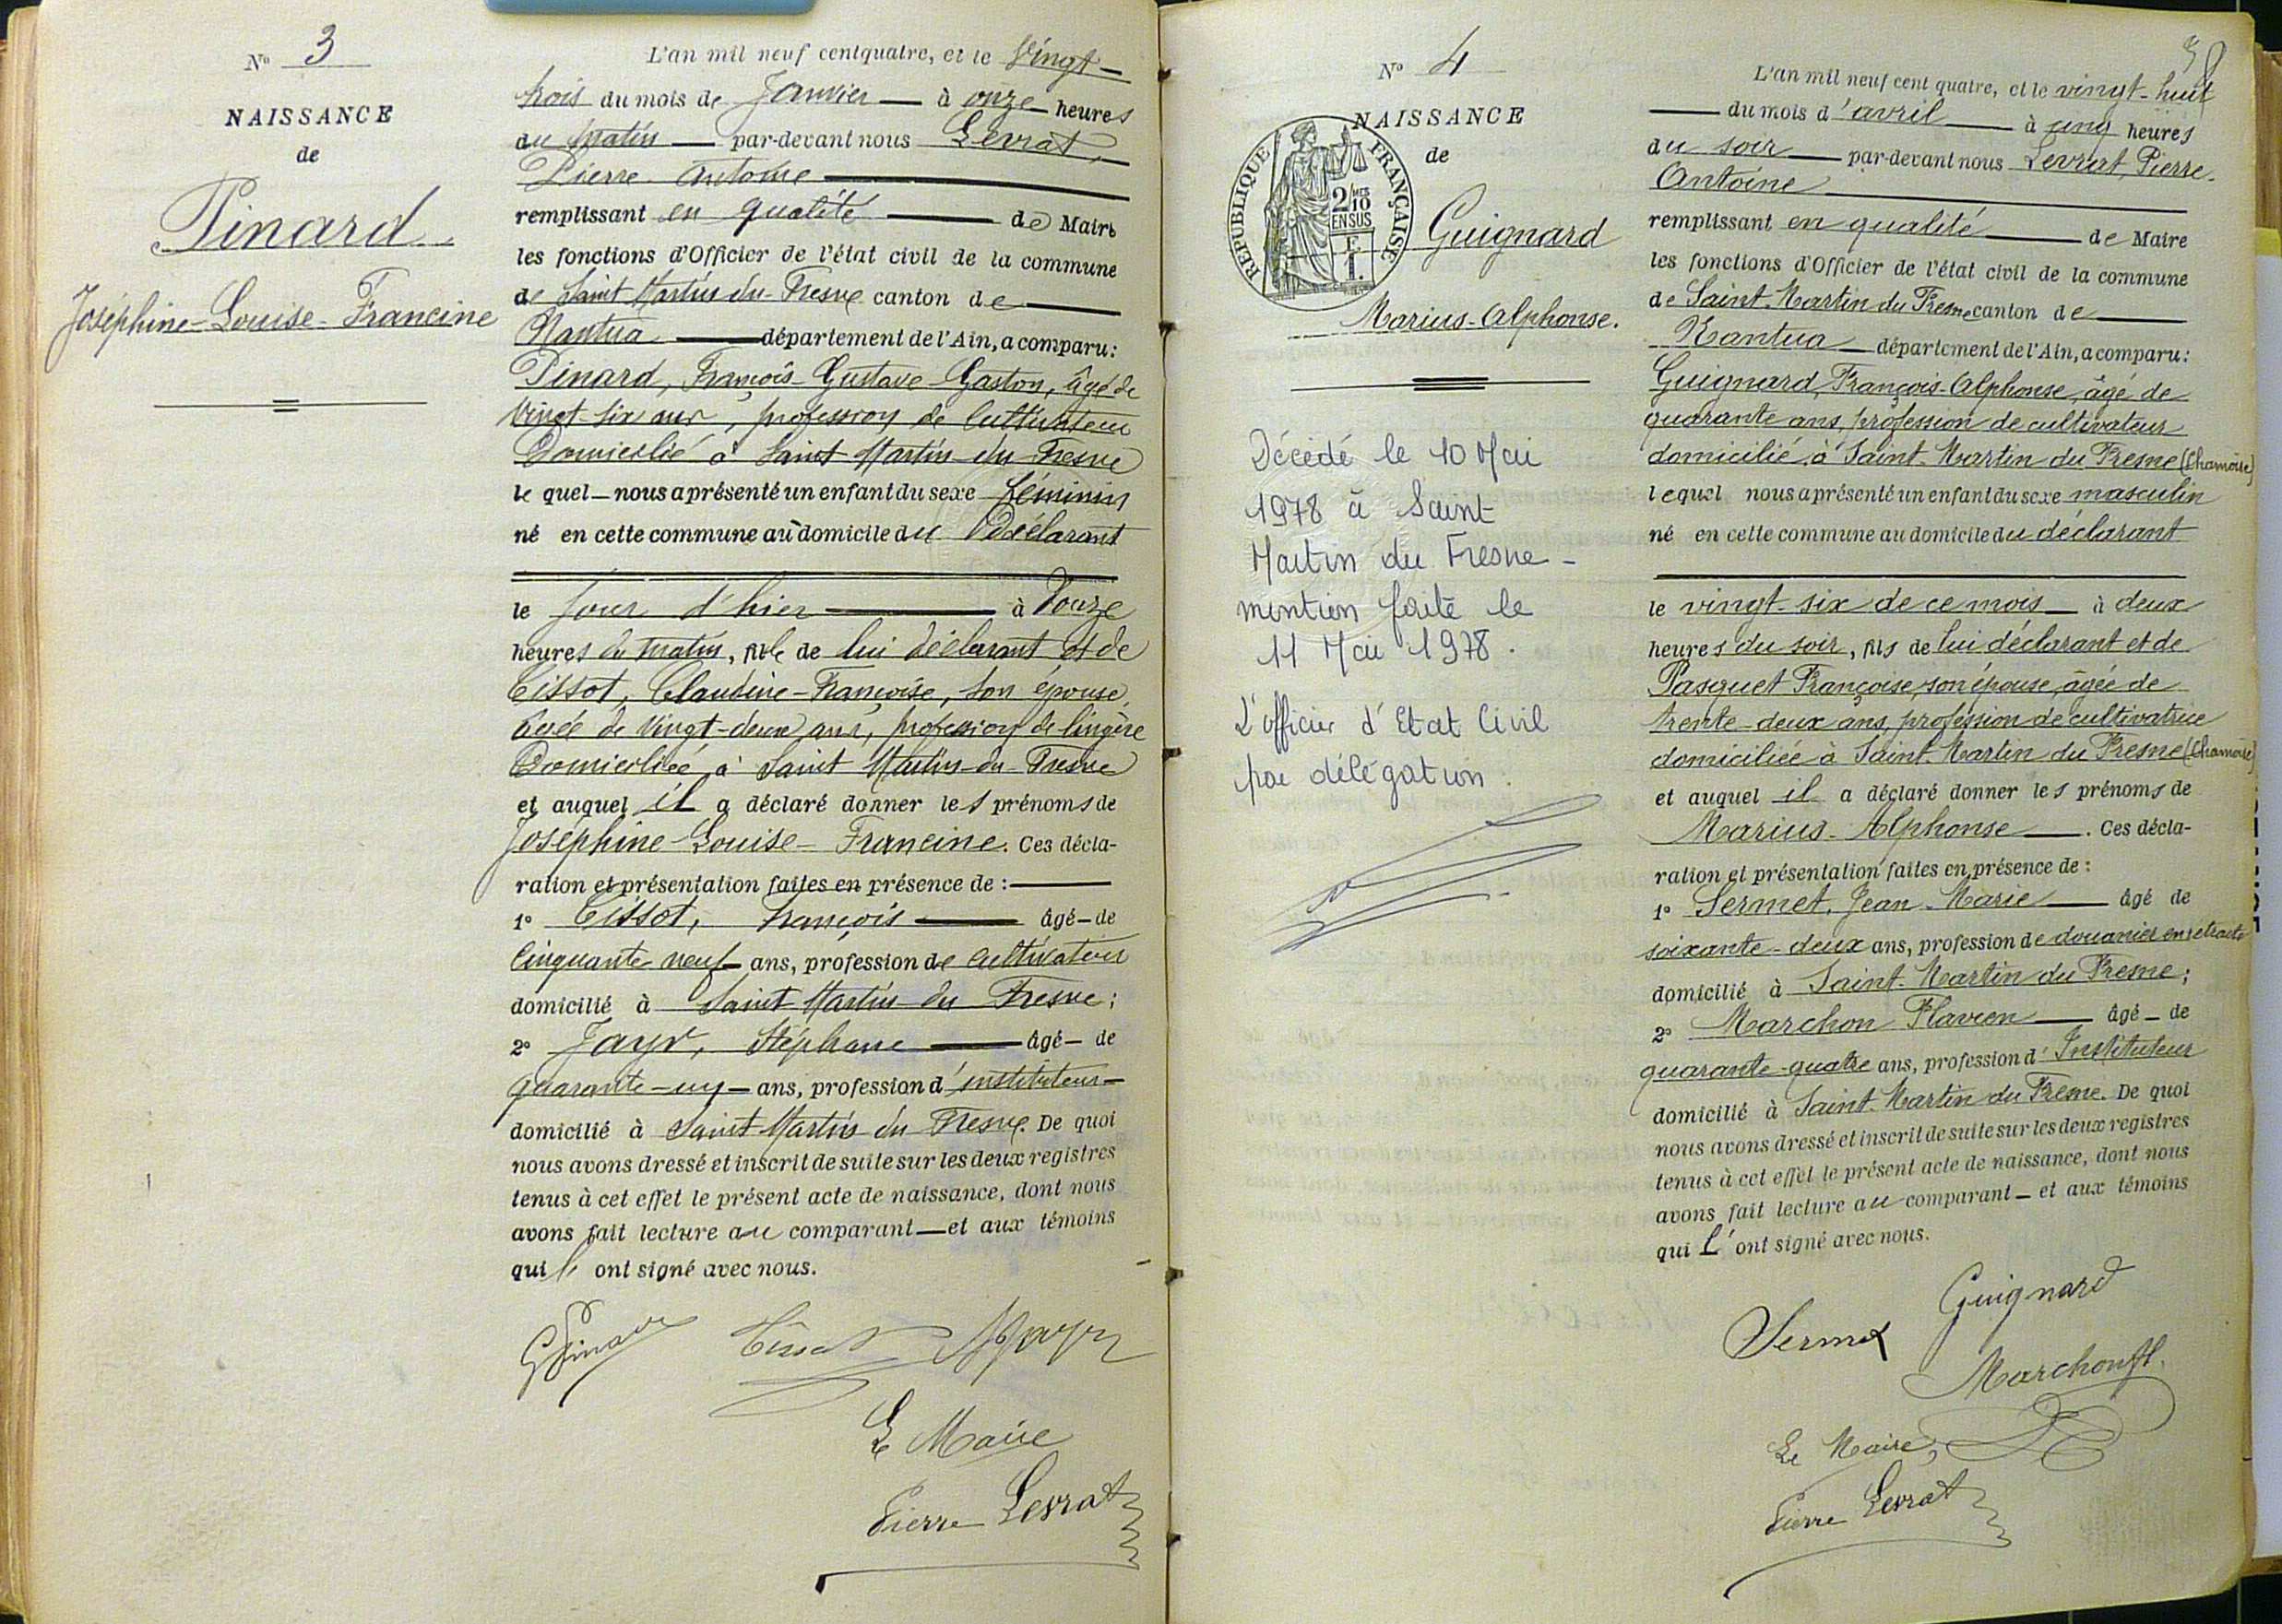 N° 3
NAISSANCE
de
Pinard
Joséphine-Louise-Francine
L'an mil neuf cent quatre, et le Vingt-
trois du mois de Janvier à onze heures
du Matin par-devant nous Levrat,
Pierre Antoine
remplissant en qualité de Maire
les fonctions d'Officier de l'état civil de la commune
de Saint Martin-du-Fresne canton de
Nantua département de l'Ain, a comparu:
Pinard, François-Gustave-Gaston, âgé de
Vingt-six ans, profession de Cultivateur
Domicilié à Saint Martin-du-Fresne
le quel nous a présenté un enfant du sexe féminin
né en cette commune au domicile du Déclarant
le jour d'hier à Douze
heures du matin, fille de lui déclarant et de
Tissot, Claudine-Françoise, son épouse,
âgée de Vingt-deux ans, profession de lingère
Domiciliée à Saint Martin-du-Fresne
et auquel il a déclaré donner les prénoms de
Joséphine-Louise-Francine. Ces décla-
ration et présentation faites en présence de :
1° Tissot, François âgé de
Cinquante neuf ans, profession de cultivateur
domicilié à Saint Martin-du Fresne;
2° Jayr, Stéphane âgé de
quarante-un ans, profession d'instituteur
domicilié à Saint-Martin-du Fresne. De quoi
nous avons dressé et inscrit de suite sur les deux registres
tenus à cet effet le présent acte de naissance, dont nous
avons fait lecture au comparant et aux témoins
qui l' ont signé avec nous.
GPinard Tissot SJayr
Le Maire
Pierre Levrat
38
N° 4
NAISSANCE
de
RÉPUBLIQUE FRANÇAISE
2/10 EN SUS
Guignard
Marius-Alphonse.
Décédé le 10 Mai
1978 à Saint
Martin du Fresne -
mention faite le
11 Mai 1978.
L'officier d'Etat Civil
par délégation.
L'an mil neuf cent quatre, et le vingt-huit
du mois d'avril à cinq heures
du soir par-devant nous Levrat, Pierre-
Antoine
remplissant en qualité de Maire
les fonctions d'Officier de l'état civil de la commune
de Saint-Martin du Fresne canton de
Nantua département de l'Ain, a comparu:
Guignard, François-Alphonse, âgé de
quarante ans, profession de cultivateur
domicilié à Saint-Martin du Fresne (Chamoise)
lequel nous a présenté un enfant du sexe masculin
né en cette commune au domicile du déclarant
le vingt-six de ce mois à deux
heures du soir, fils de lui déclarant et de
Pasquet Françoise, son épouse, âgée de
trente-deux ans, profession de cultivatrice
domiciliée à Saint-Martin du Fresne (Chamoise)
et auquel il a déclaré donner les prénoms de
Marius-Alphonse. Ces décla-
ration et présentation faites en présence de :
1° Sermet, Jean-Marie âgé de
soixante-deux ans, profession de douanier en retraite
domicilié à Saint-Martin du Fresne;
2° Marchon Flavien âgé de
quarante-quatre ans, profession d'Instituteur
domicilié à Saint-Martin du Fresne. De quoi
nous avons dressé et inscrit de suite sur les deux registres
tenus à cet effet le présent acte de naissance, dont nous
avons fait lecture au comparant et aux témoins
qui l' ont signé avec nous.
Guignard
Sermet
Marchon fl.
Le Maire,
Pierre Levrat